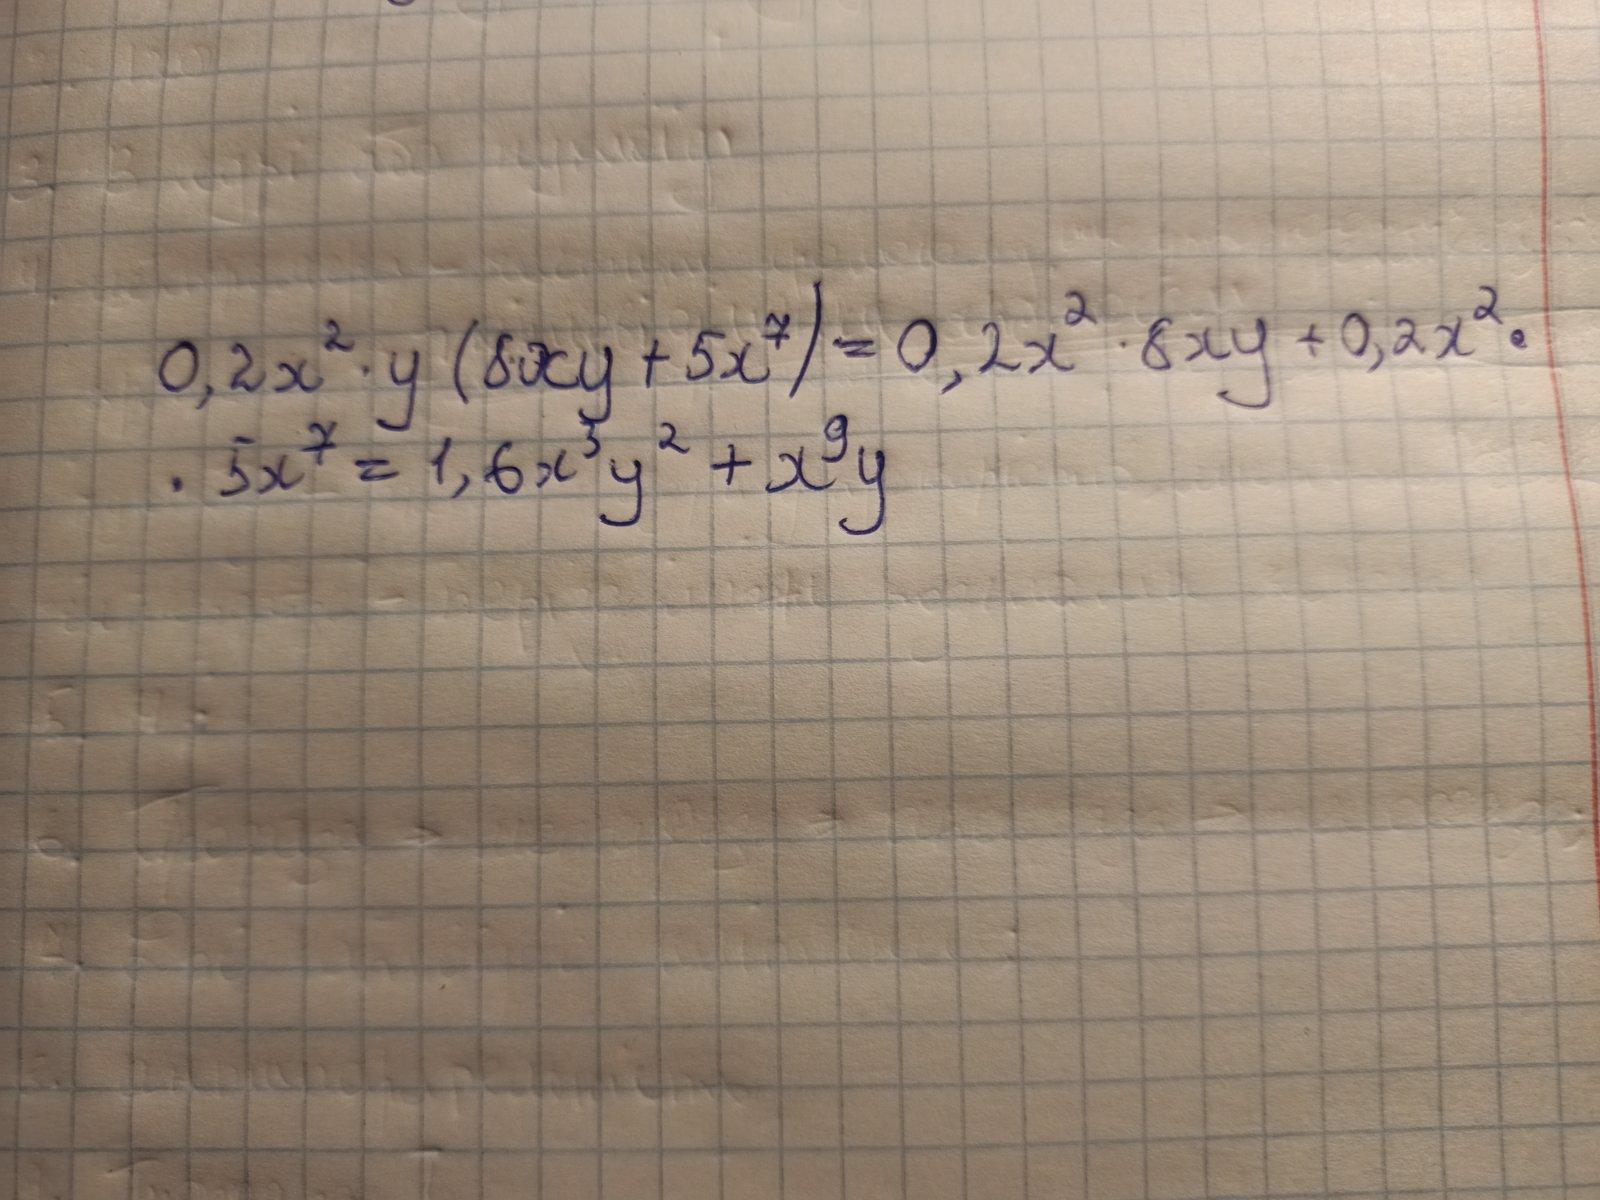 0,2x²·y (8xy + 5x⁷) = 0,2x² · 8xy + 0,2x² ·
· 5x⁷ = 1,6x³y² + x⁹y